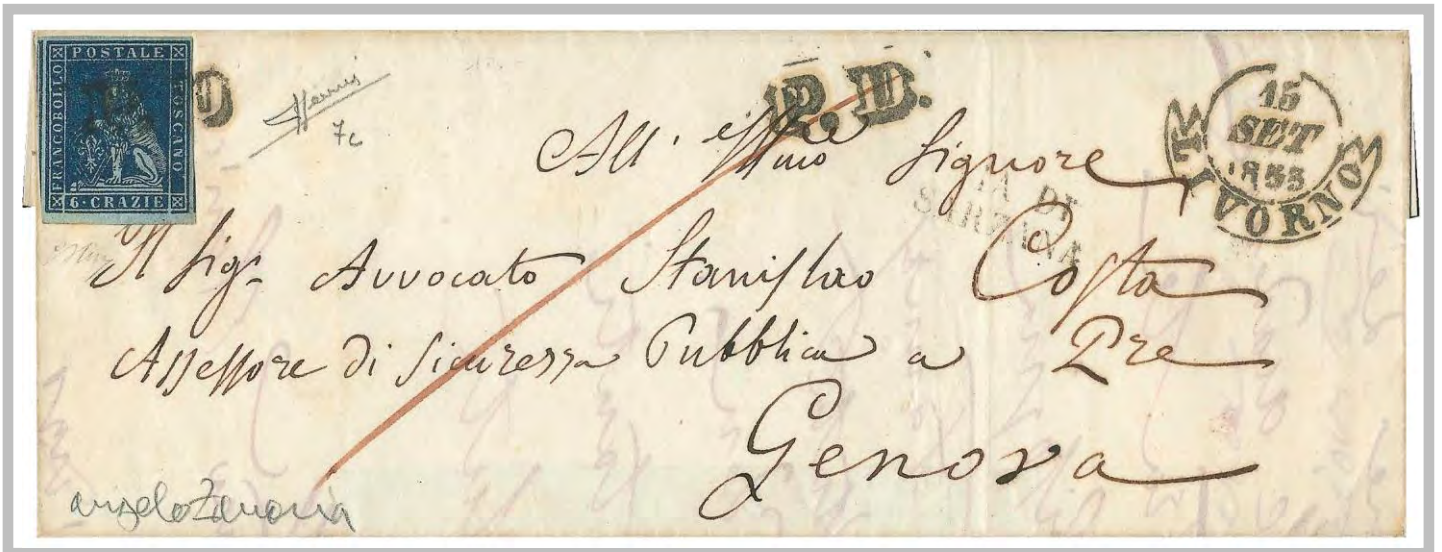 FRANCOBOLLO POSTALE TOSCANO
6·CRAZIE
P.D.
7c
15
SET
1855
LIVORNO
VIA DI
SARZANA
All' Signore
Il Sigr Avvocato Stanislao Costa
Assessore di Sicurezza Pubblica a Pre
Genova
angelo Zanaria